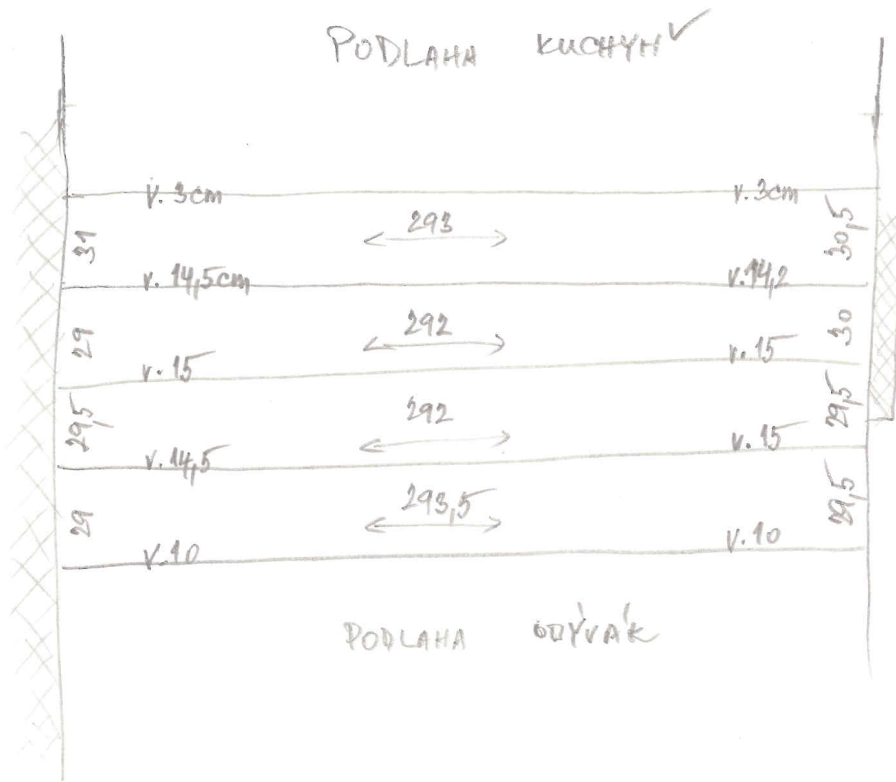 PODLAHA KUCHYŇ
v. 3cm v. 3cm
31 293 30,5
v. 14,5cm v. 14,2
29 292 30
v. 15 v. 15
29,5 292 29,5
v. 14,5 v. 15
29 293,5 29,5
v. 10 v. 10
PODLAHA OBÝVÁK